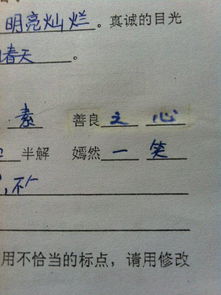 明亮灿烂。真诚的目光
春天。
素 善良之心
半解 嫣然一笑
用不恰当的标点，请用修改